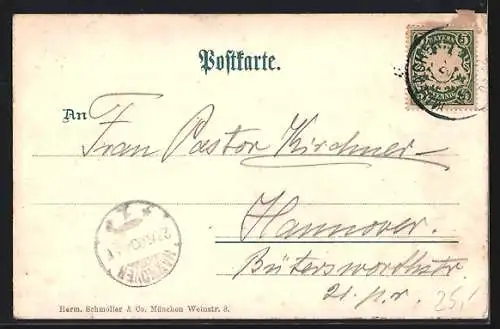 Postkarte.
BAYERN 5
PFENNIG
An Frau Pastor Kirchner
Hannover.
Bütersworthstr.
21. p. r.
HANNOVER
25,-
Herm. Schmoller & Co. München Weinstr. 8.